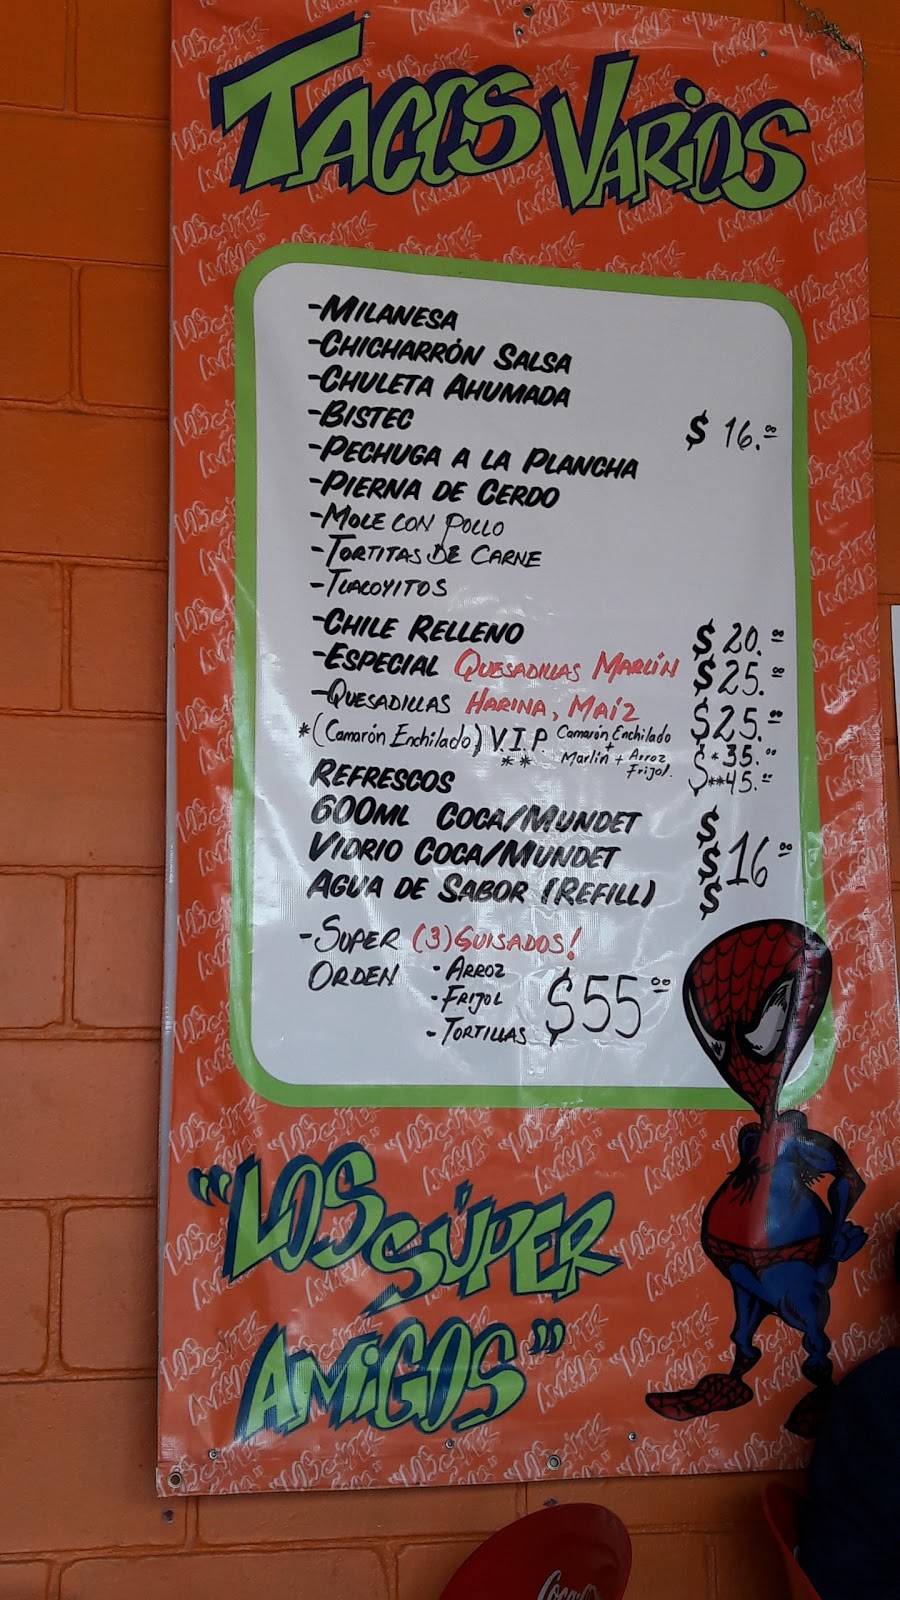 TACOS VARIOS
-MILANESA
-CHICHARRÓN SALSA
-CHULETA AHUMADA
-BISTEC $ 16.00
-PECHUGA A LA PLANCHA
-PIERNA DE CERDO
-MOLE CON POLLO
-TORTITAS DE CARNE
-TLACOYITOS
-CHILE RELLENO $ 20.00
-ESPECIAL QUESADILLAS MARLÍN $25.00
-QUESADILLAS HARINA, MAÍZ $25.00
*(Camarón Enchilado) V.I.P. Camarón Enchilado $*35.00
** + Marlin + Arroz Frijol. $**45.00
REFRESCOS
600ML COCA/MUNDET $
VIDRIO COCA/MUNDET $ 16.00
AGUA DE SABOR (REFILL) $
-SUPER (3) GUISADOS!
ORDEN - ARROZ
- FRIJOL $55.00
- TORTILLAS
"LOS SÚPER
AMIGOS"